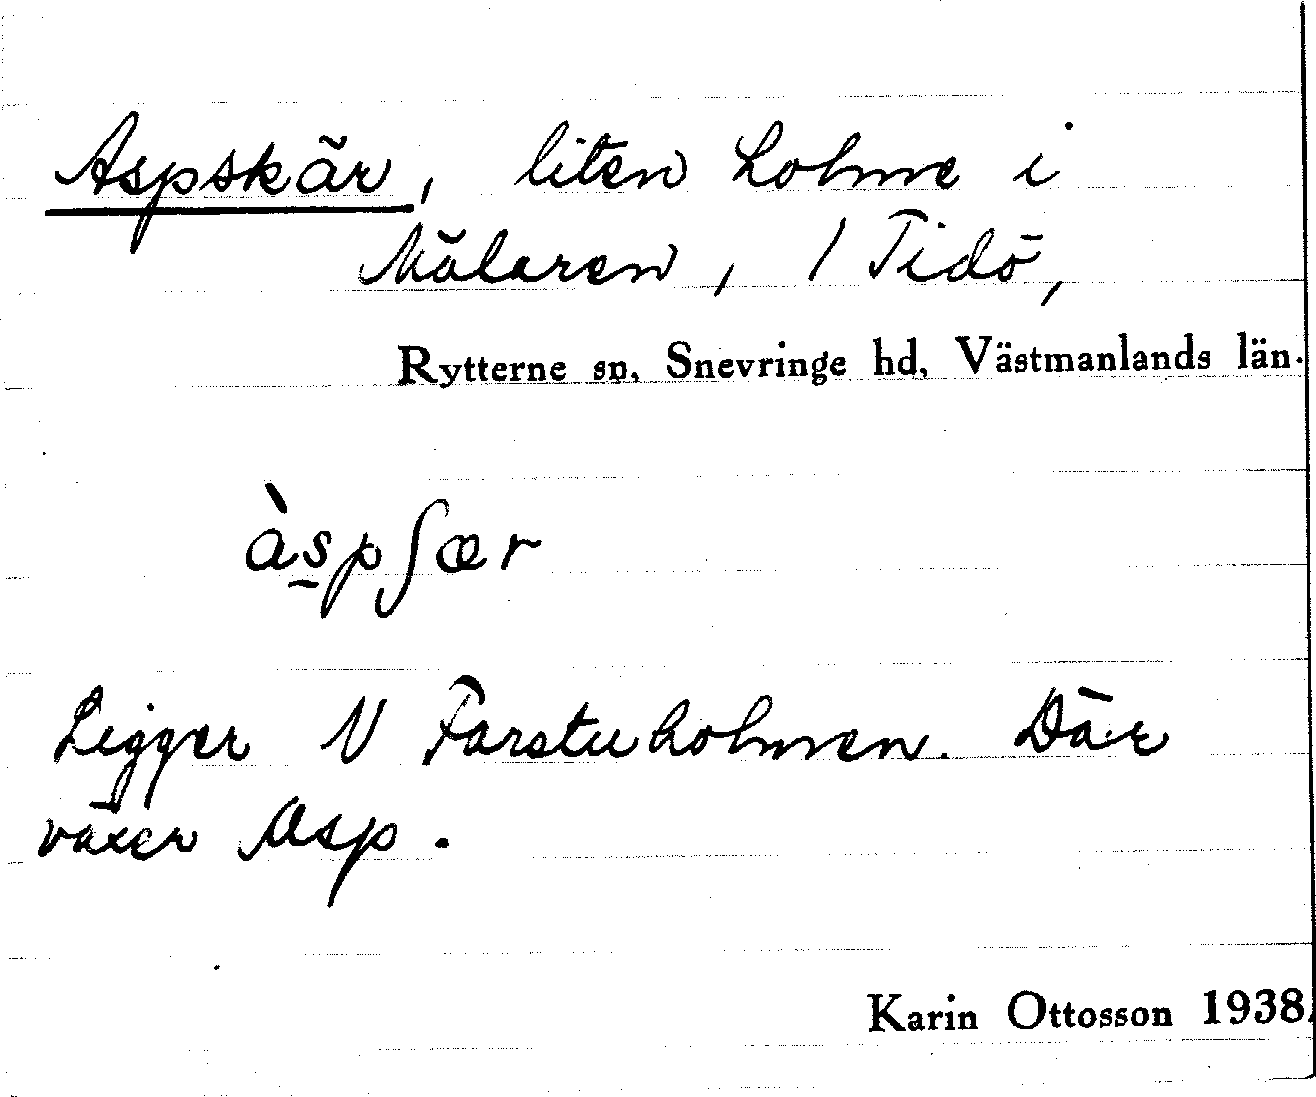 Aspskär, liten holme i
Mälaren, / Tidö,
Rytterne sn, Snevringe hd, Västmanlands län.
àspʃær
Ligger N Farstuholmen. Där
växer Asp.
Karin Ottosson 1938.